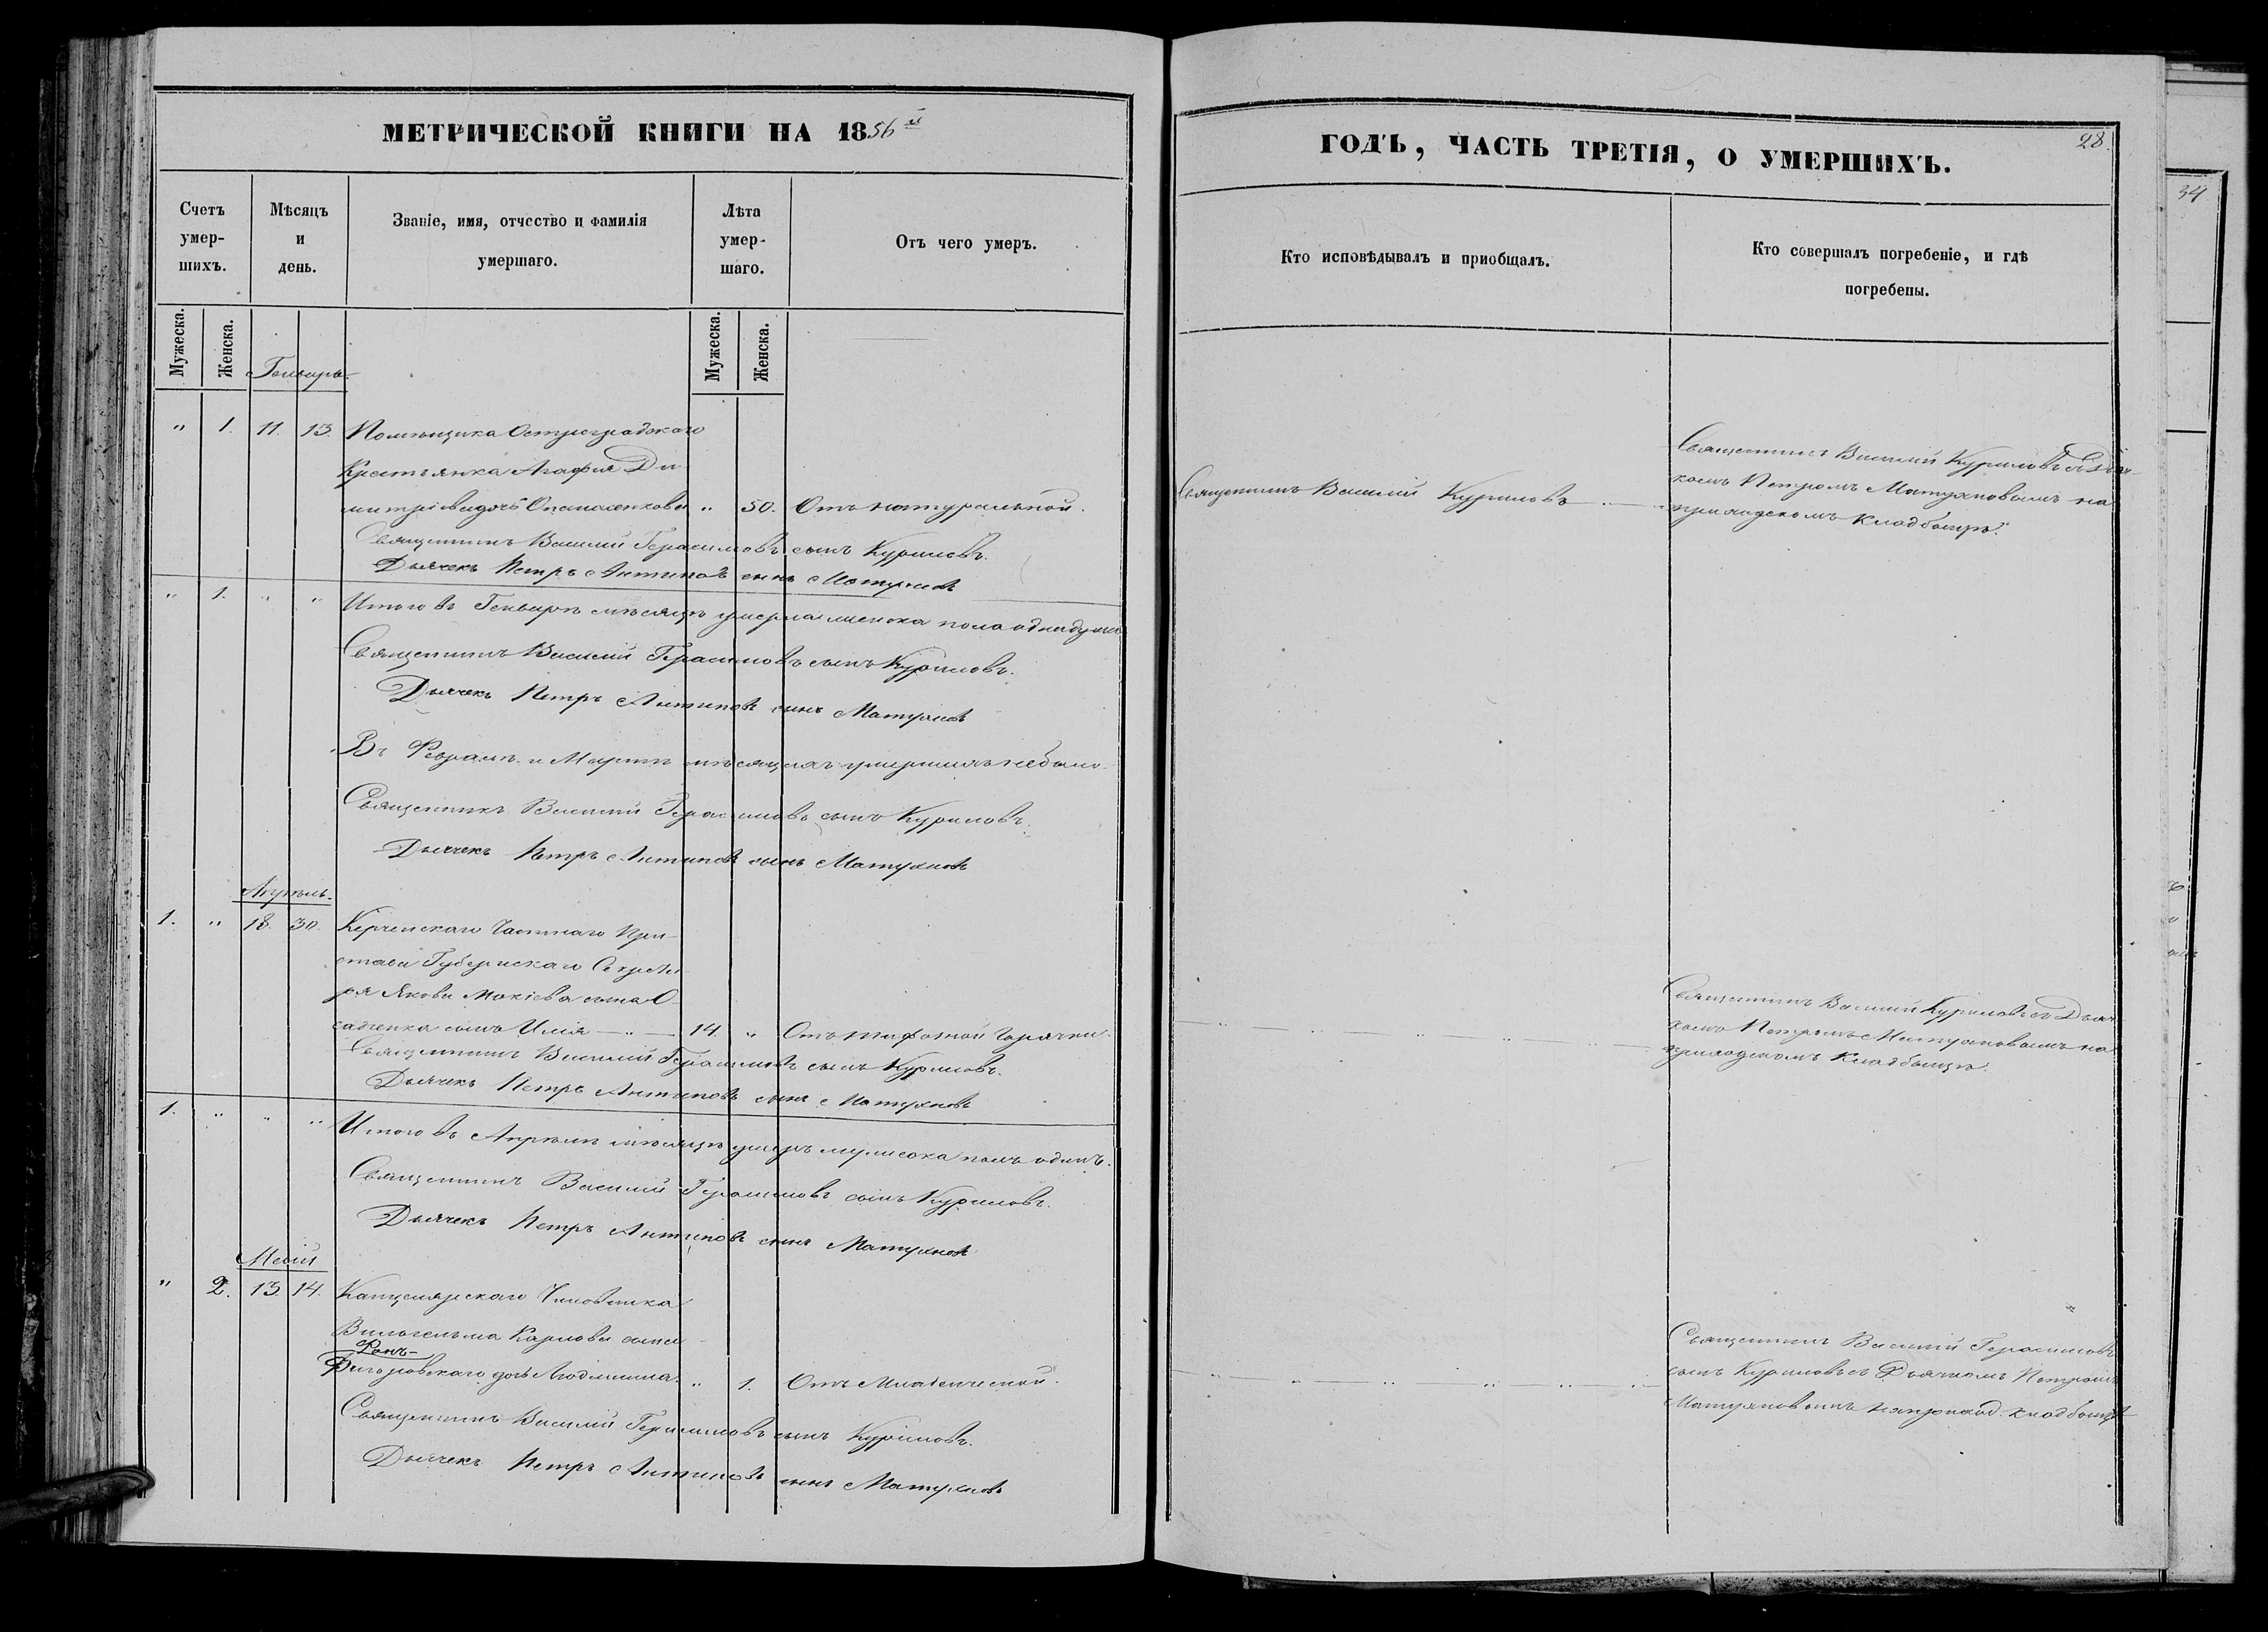 МЕТРИЧЕСКОЙ КНИГИ НА 1856й
Счетъ умер-шихъ.
Мѣсяцъ и день.
Званіе, имя, отчество и фамилія умершаго.
Лѣта умер-шаго.
Отъ чего умеръ.
Мужеска.
Женска.
Мужеска.
Женска.
Генварь
" 1. 11. 13. Помѣщика Остроградскаго
Крестьянка Агафия Ди-
митріева дочь " 50. Отъ натуральной.
Священникъ Василий Герасимовъ сынъ Куриловъ.
Дьячекъ Петръ Антиповъ сынъ Матухновъ
" 1. " " Итого въ Генварѣ мѣсяцѣ умерла женска пола одна душа
Священникъ Василий Герасимовъ сынъ Куриловъ.
Дьячекъ Петръ Антиповъ сынъ Матухновъ
Въ Февралѣ и Мартѣ мѣсяцахъ умершихъ небыло
Священникъ Василий Герасимовъ сынъ Куриловъ.
Дьячекъ Петръ Антиповъ сынъ Матухновъ
Апрѣль.
1. " 18. 30. Керченскаго Частнаго При-
става Губернскаго Секрета-
ря Якова Мокіева сына О-
садченка сынъ Илія — " — 14. " Отъ тифозной Горячки
Священникъ Василий Герасимовъ сынъ Куриловъ.
Дьячекъ Петръ Антиповъ сынъ Матухновъ
1. " " " Итого въ Апрѣлѣ мѣсяцѣ умеръ мужеска полъ одинъ.
Священникъ Василий Герасимовъ сынъ Куриловъ.
Дьячекъ Петръ Антиповъ сынъ Матухновъ
Маій
" 2. 13. 14. Канцелярскаго Чиновника
Вильгельма Карлова сына
Фонъ-
дочь Людмила. " 1. Отъ Младенческой.
Священникъ Василий Герасимовъ сынъ Куриловъ.
Дьячекъ Петръ Антиповъ сынъ Матухновъ
ГОДЪ, ЧАСТЬ ТРЕТІЯ, О УМЕРШИХЪ.
28.
Кто исповѣдывалъ и приобщалъ.
Кто совершалъ погребеніе, и гдѣ погребены.
Священникъ Василий Куриловъ
Священникъ Василий Куриловъ съ Дьяч-
комъ Петромъ Матухновымъ на
приходскомъ кладбищѣ.
Священникъ Василий Куриловъ съ Дьяч-
комъ Петромъ Матухновымъ на
приходскомъ Кладбищѣ.
Священникъ Василий Герасимовъ
сынъ Куриловъ съ Дьячкомъ Петромъ
Матухновымъ на приход. кладбищѣ
34